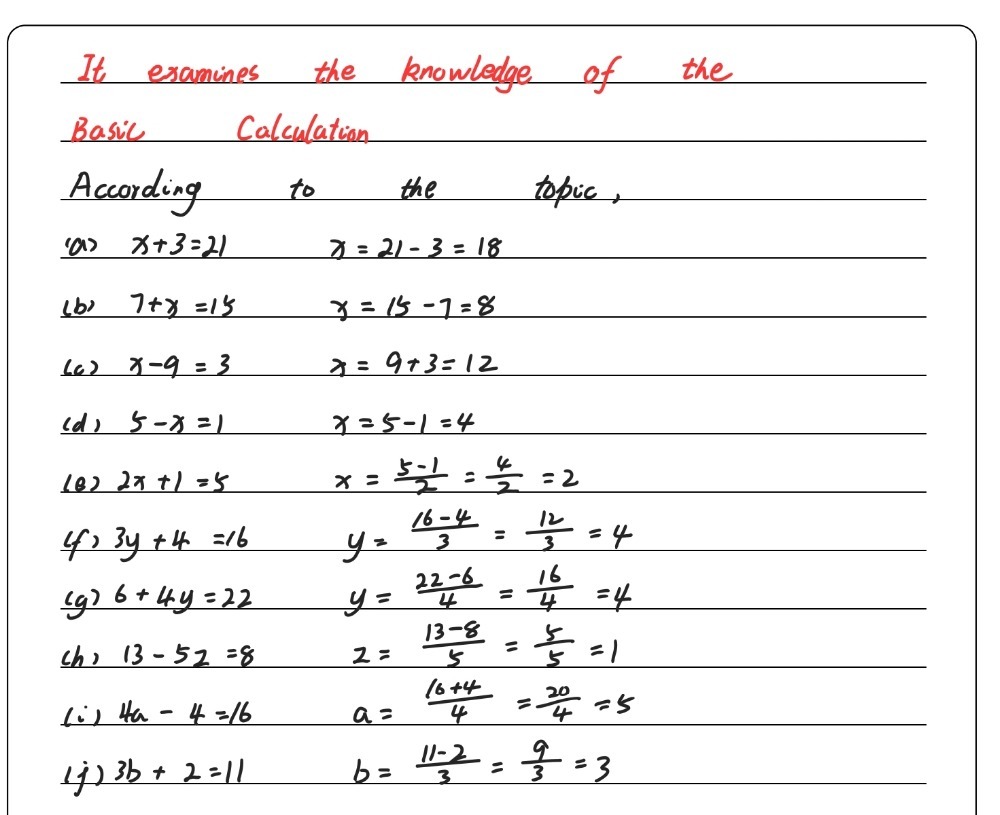 It examines the knowledge of the
Basic Calculation
According to the topic,
(a) x+3=21 x = 21 - 3 = 18
(b) 7+x =15 x = 15 -7=8
(c) x-9 = 3 x = 9+3=12
(d) 5-x=1 x=5-1=4
(e) 2x+1=5 x = \frac{5-1}{2} = \frac{4}{2} =2
(f) 3y+4 =16 y= \frac{16-4}{3} = \frac{12}{3} = 4
(g) 6+4y=22 y= \frac{22-6}{4} = \frac{16}{4} =4
(h) 13-5z=8 z= \frac{13-8}{5} = \frac{5}{5} =1
(i) 4a-4=16 a= \frac{16+4}{4} = \frac{20}{4} =5
(j) 3b+2=11 b= \frac{11-2}{3} = \frac{9}{3} =3